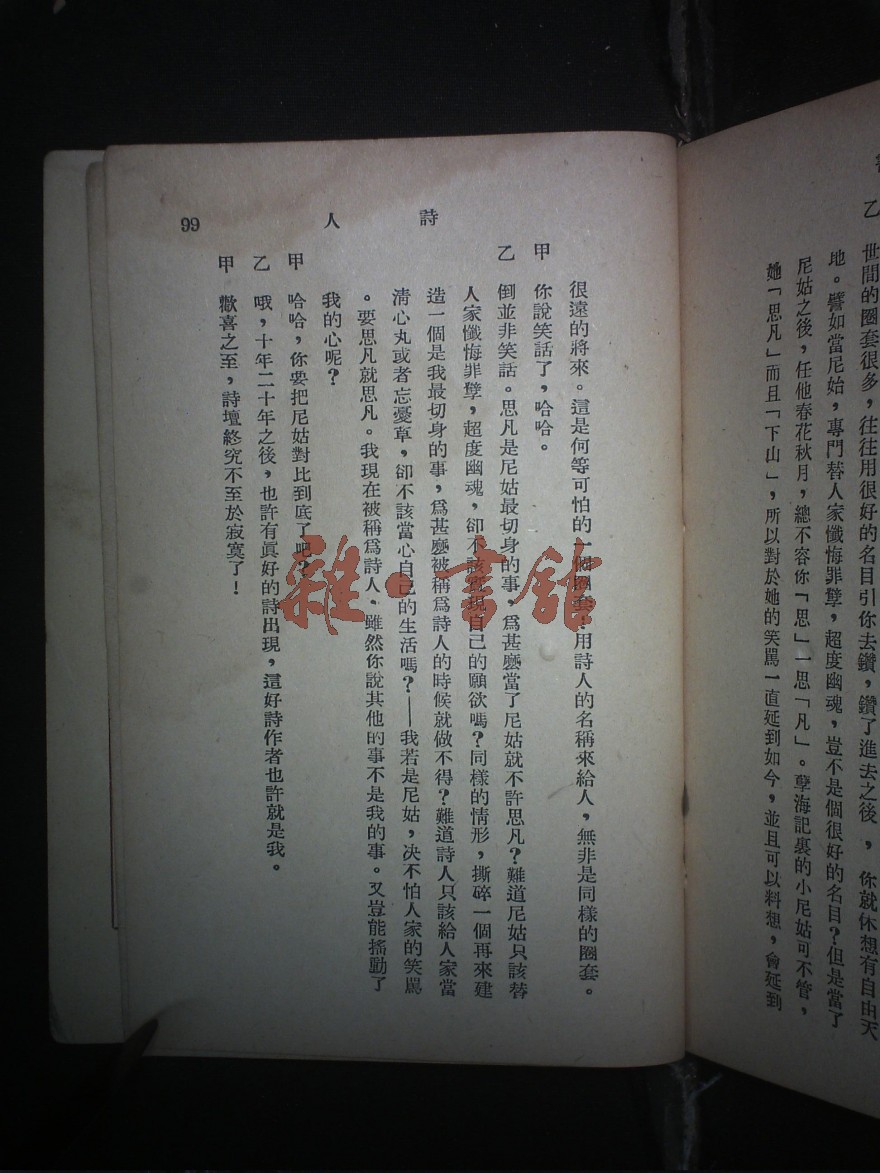 乙　世間的圈套很多，往往用很好的名目引你去鑽，鑽了進去之後，你就休想有自由天
地。譬如當尼始，專門替人家懺悔罪孽，超度幽魂，豈不是個很好的名目？但是當了
尼姑之後，任他春花秋月，總不容你「思」一思「凡」。孽海記裏的小尼姑可不管，
她「思凡」而且「下山」，所以對於她的笑罵一直延到如今，並且可以料想，會延到
詩人
99
很遠的將來。這是何等可怕的一個圈套！用詩人的名稱來給人，無非是同樣的圈套。
甲　你說笑話了，哈哈。
乙　倒並非笑話。思凡是尼姑最切身的事，爲甚麼當了尼姑就不許思凡？難道尼姑只該替
人家懺悔罪孽，超度幽魂，卻不該實現自己的願欲嗎？同樣的情形，撕碎一個再來建
造一個是我最切身的事，爲甚麼被稱爲詩人的時候就做不得？難道詩人只該給人家當
清心丸或者忘憂草，卻不該當心自己的生活嗎？——我若是尼姑，决不怕人家的笑罵
。要思凡就思凡。我現在被稱爲詩人，雖然你說其他的事不是我的事。又豈能搖動了
我的心呢？
甲　哈哈，你要把尼姑對比到底了吧？
乙　哦，十年二十年之後，也許有眞好的詩出現，這好詩作者也許就是我。
甲　歡喜之至，詩壇終究不至於寂寞了！
雜·書館